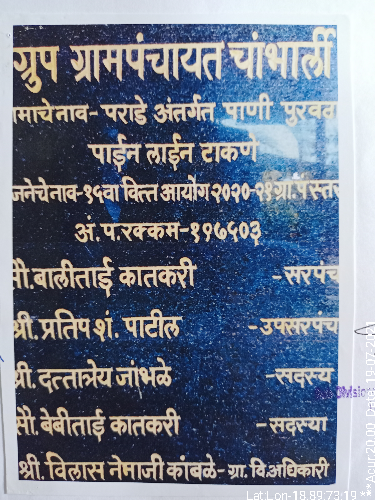 ग्रुप ग्रामपंचायत चांभार्ली
माचे नाव- पराडे अंतर्गत पाणी पुरवठा
पाईन लाईन टाकणे
जनेचे नाव-१५वा वित्त आयोग २०२०-२१ ग्रा.पं स्तर
अं.प.रक्कम-११७५०३
सौ.बालीताई कातकरी -सरपंच
श्री. प्रतिप शं. पाटील -उपसरपंच
श्री.दत्तात्रेय जांभळे -सदस्य
सौ. बेबीताई कातकरी -सदस्या
श्री. विलास नेमाजी कांबळे- ग्रा. वि.अधिकारी
Lat Lon-18.89:73:19 *** Acur 20.00 Date: 19-07-2021